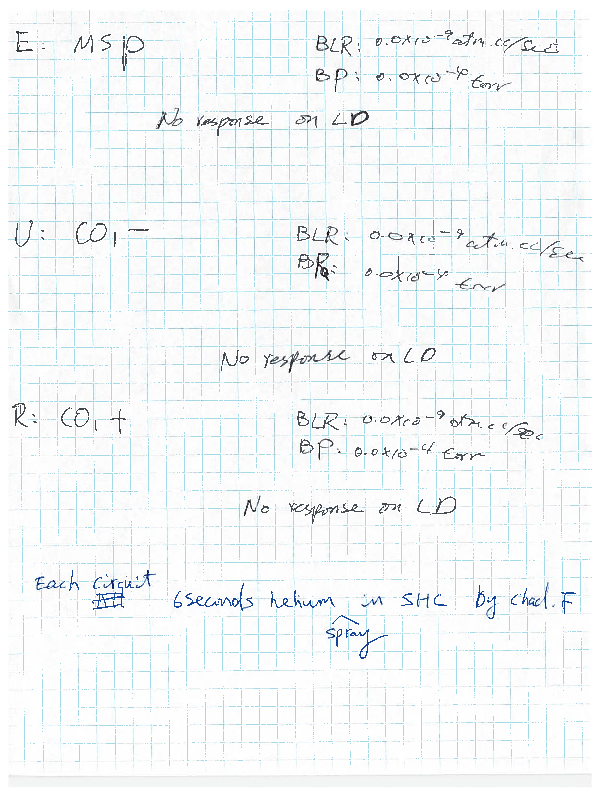 E: MSP BLR: 0.0x10⁻⁹ atm.cc/sec
BP: 0.0x10⁻⁴ torr
No response on LD
U: CO,— BLR: 0.0x10⁻⁹ atm.cc/sec
BP: 0.0x10⁻⁴ torr
No response on LD
R: CO,+ BLR: 0.0x10⁻⁹ atm.cc/sec
BP: 0.0x10⁻⁴ torr
No response on LD
Each circuit 6 seconds helium spray in SHC by Chad. F